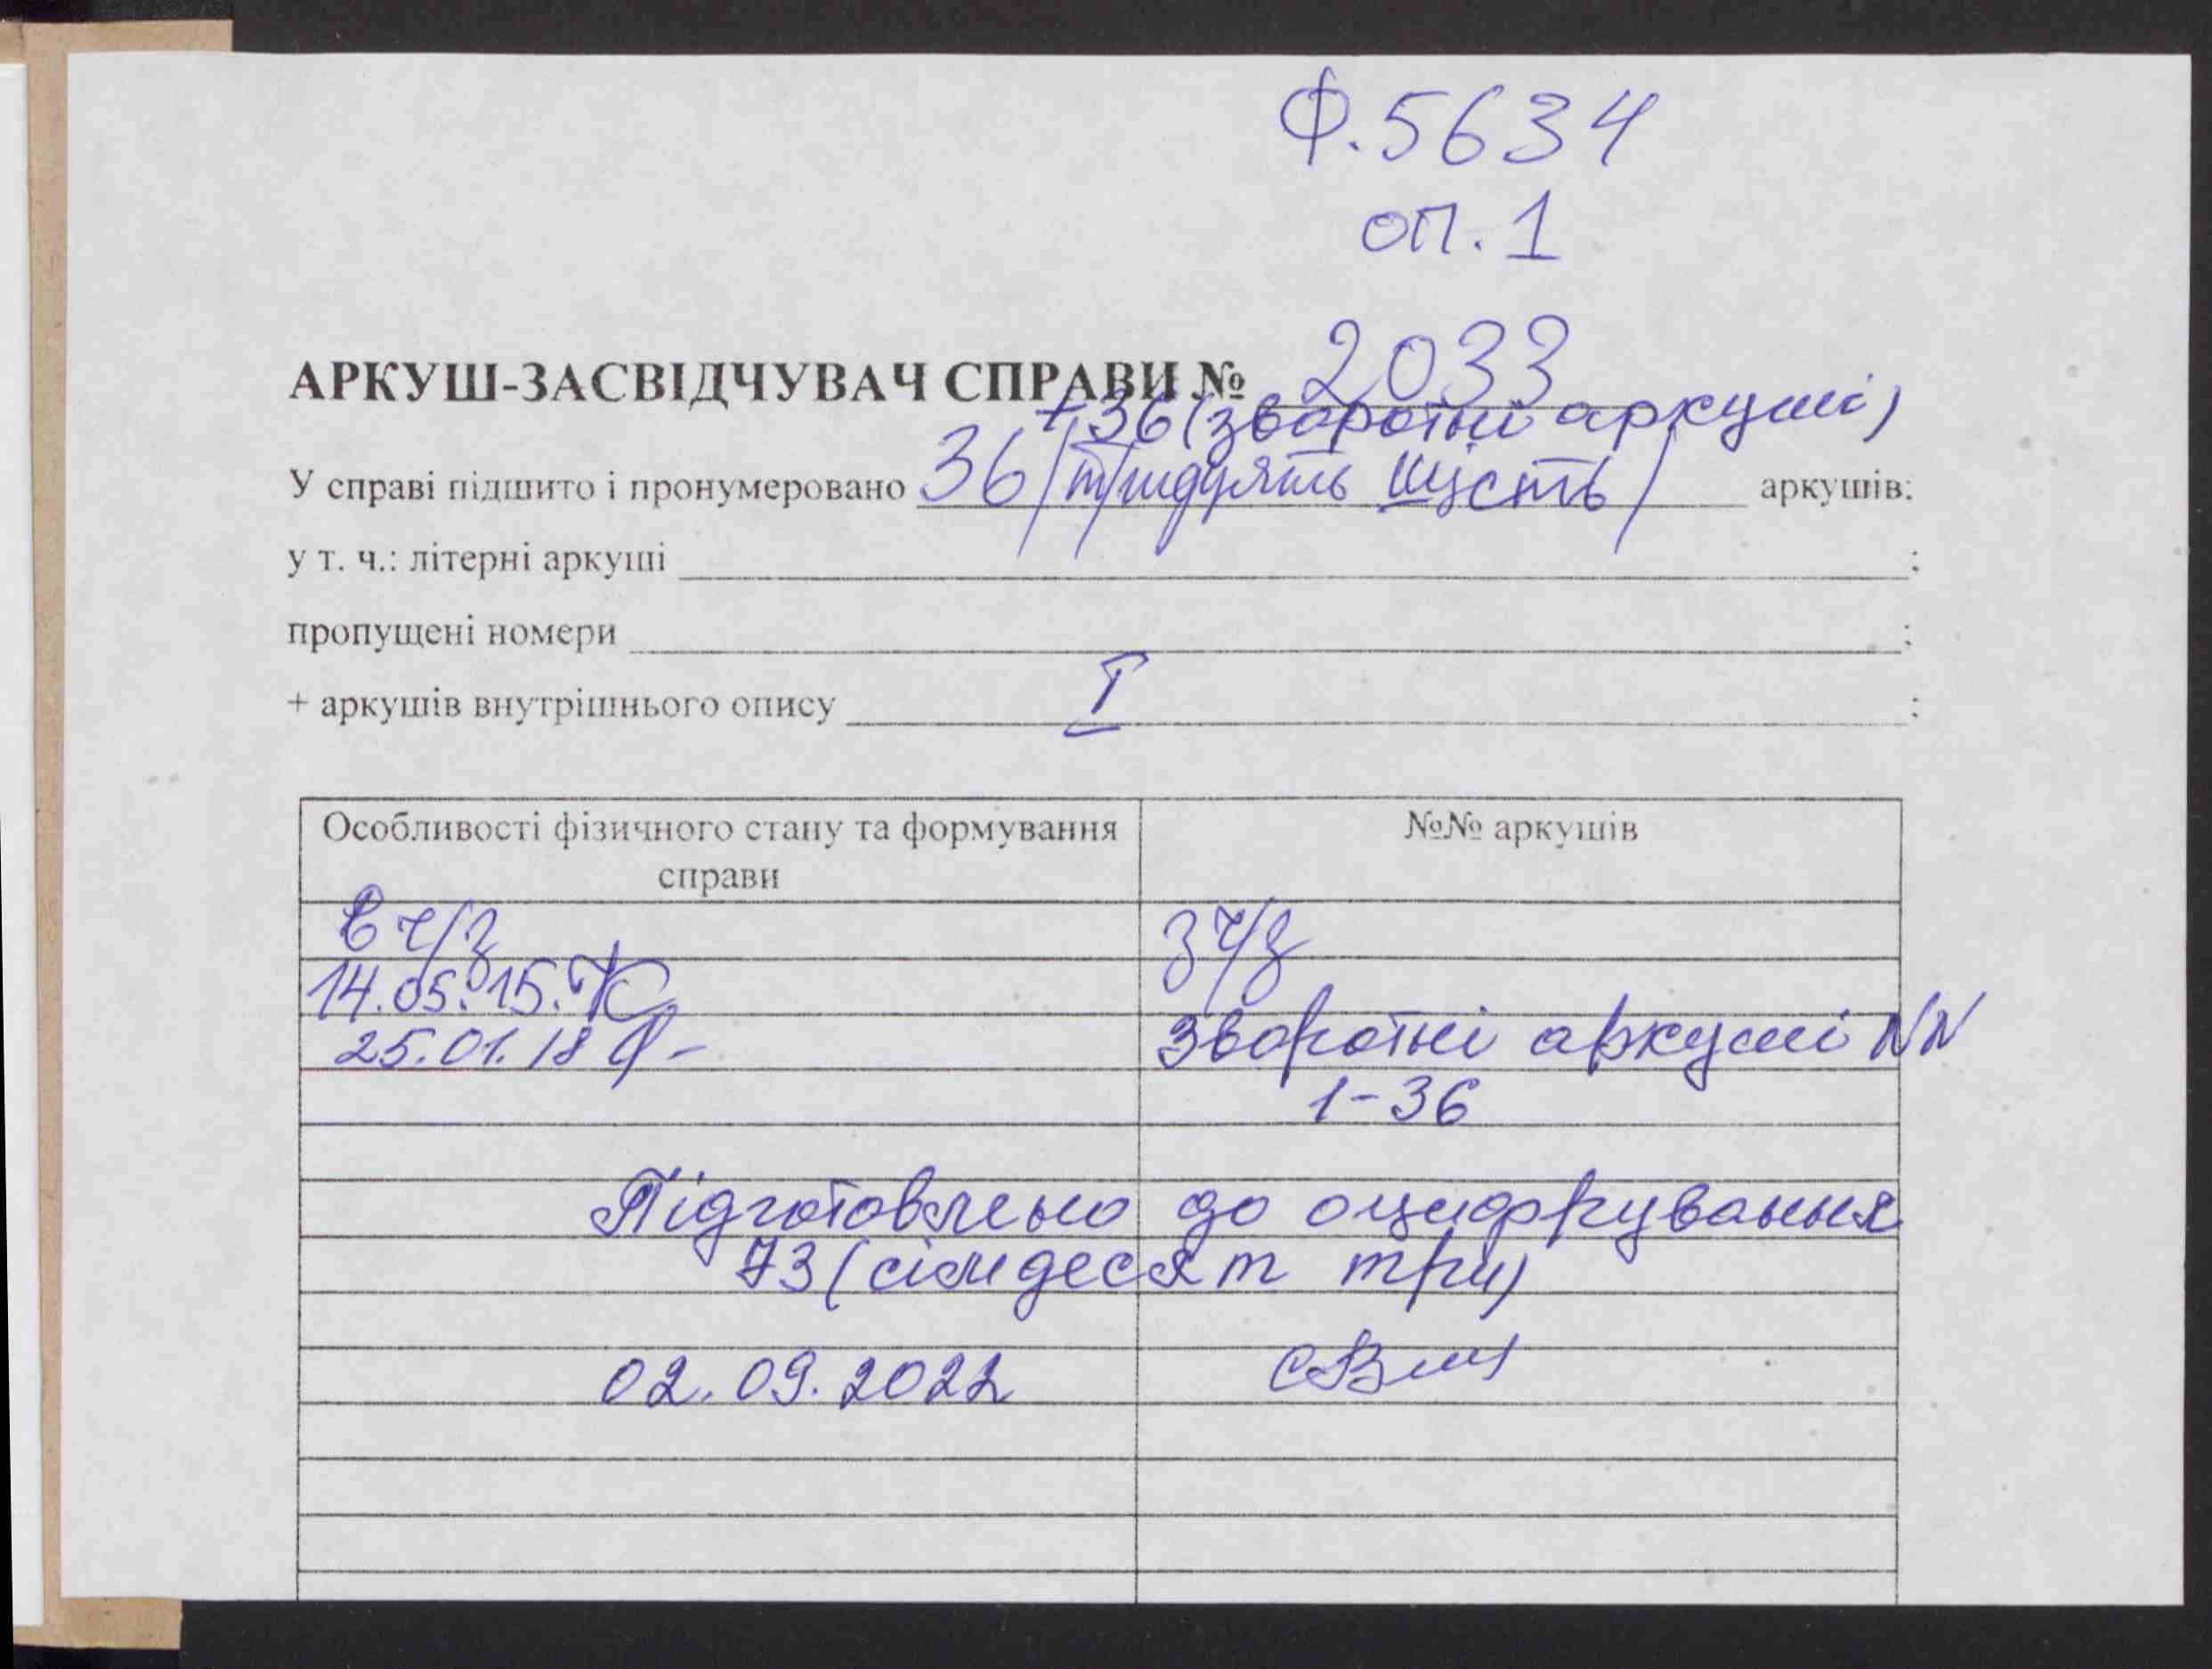 Ф. 5634
оп. 1
АРКУШ-ЗАСВІДЧУВАЧ СПРАВИ № 2033
+ 36 (зворотні аркуші)
У справі підшито і пронумеровано 36 /тридцять шість/ аркушів:
у т. ч.: літерні аркуші ;
пропущені номери ;
+ аркушів внутрішнього опису I ;
Особливості фізичного стану та формування справи
№№ аркушів
в ч/з
з ч/з
14.05.15.
25.01.18
Зворотні аркуші NN
1-36
Підготовлено до оцифрування
73 (сімдесят три)
02.09.2022